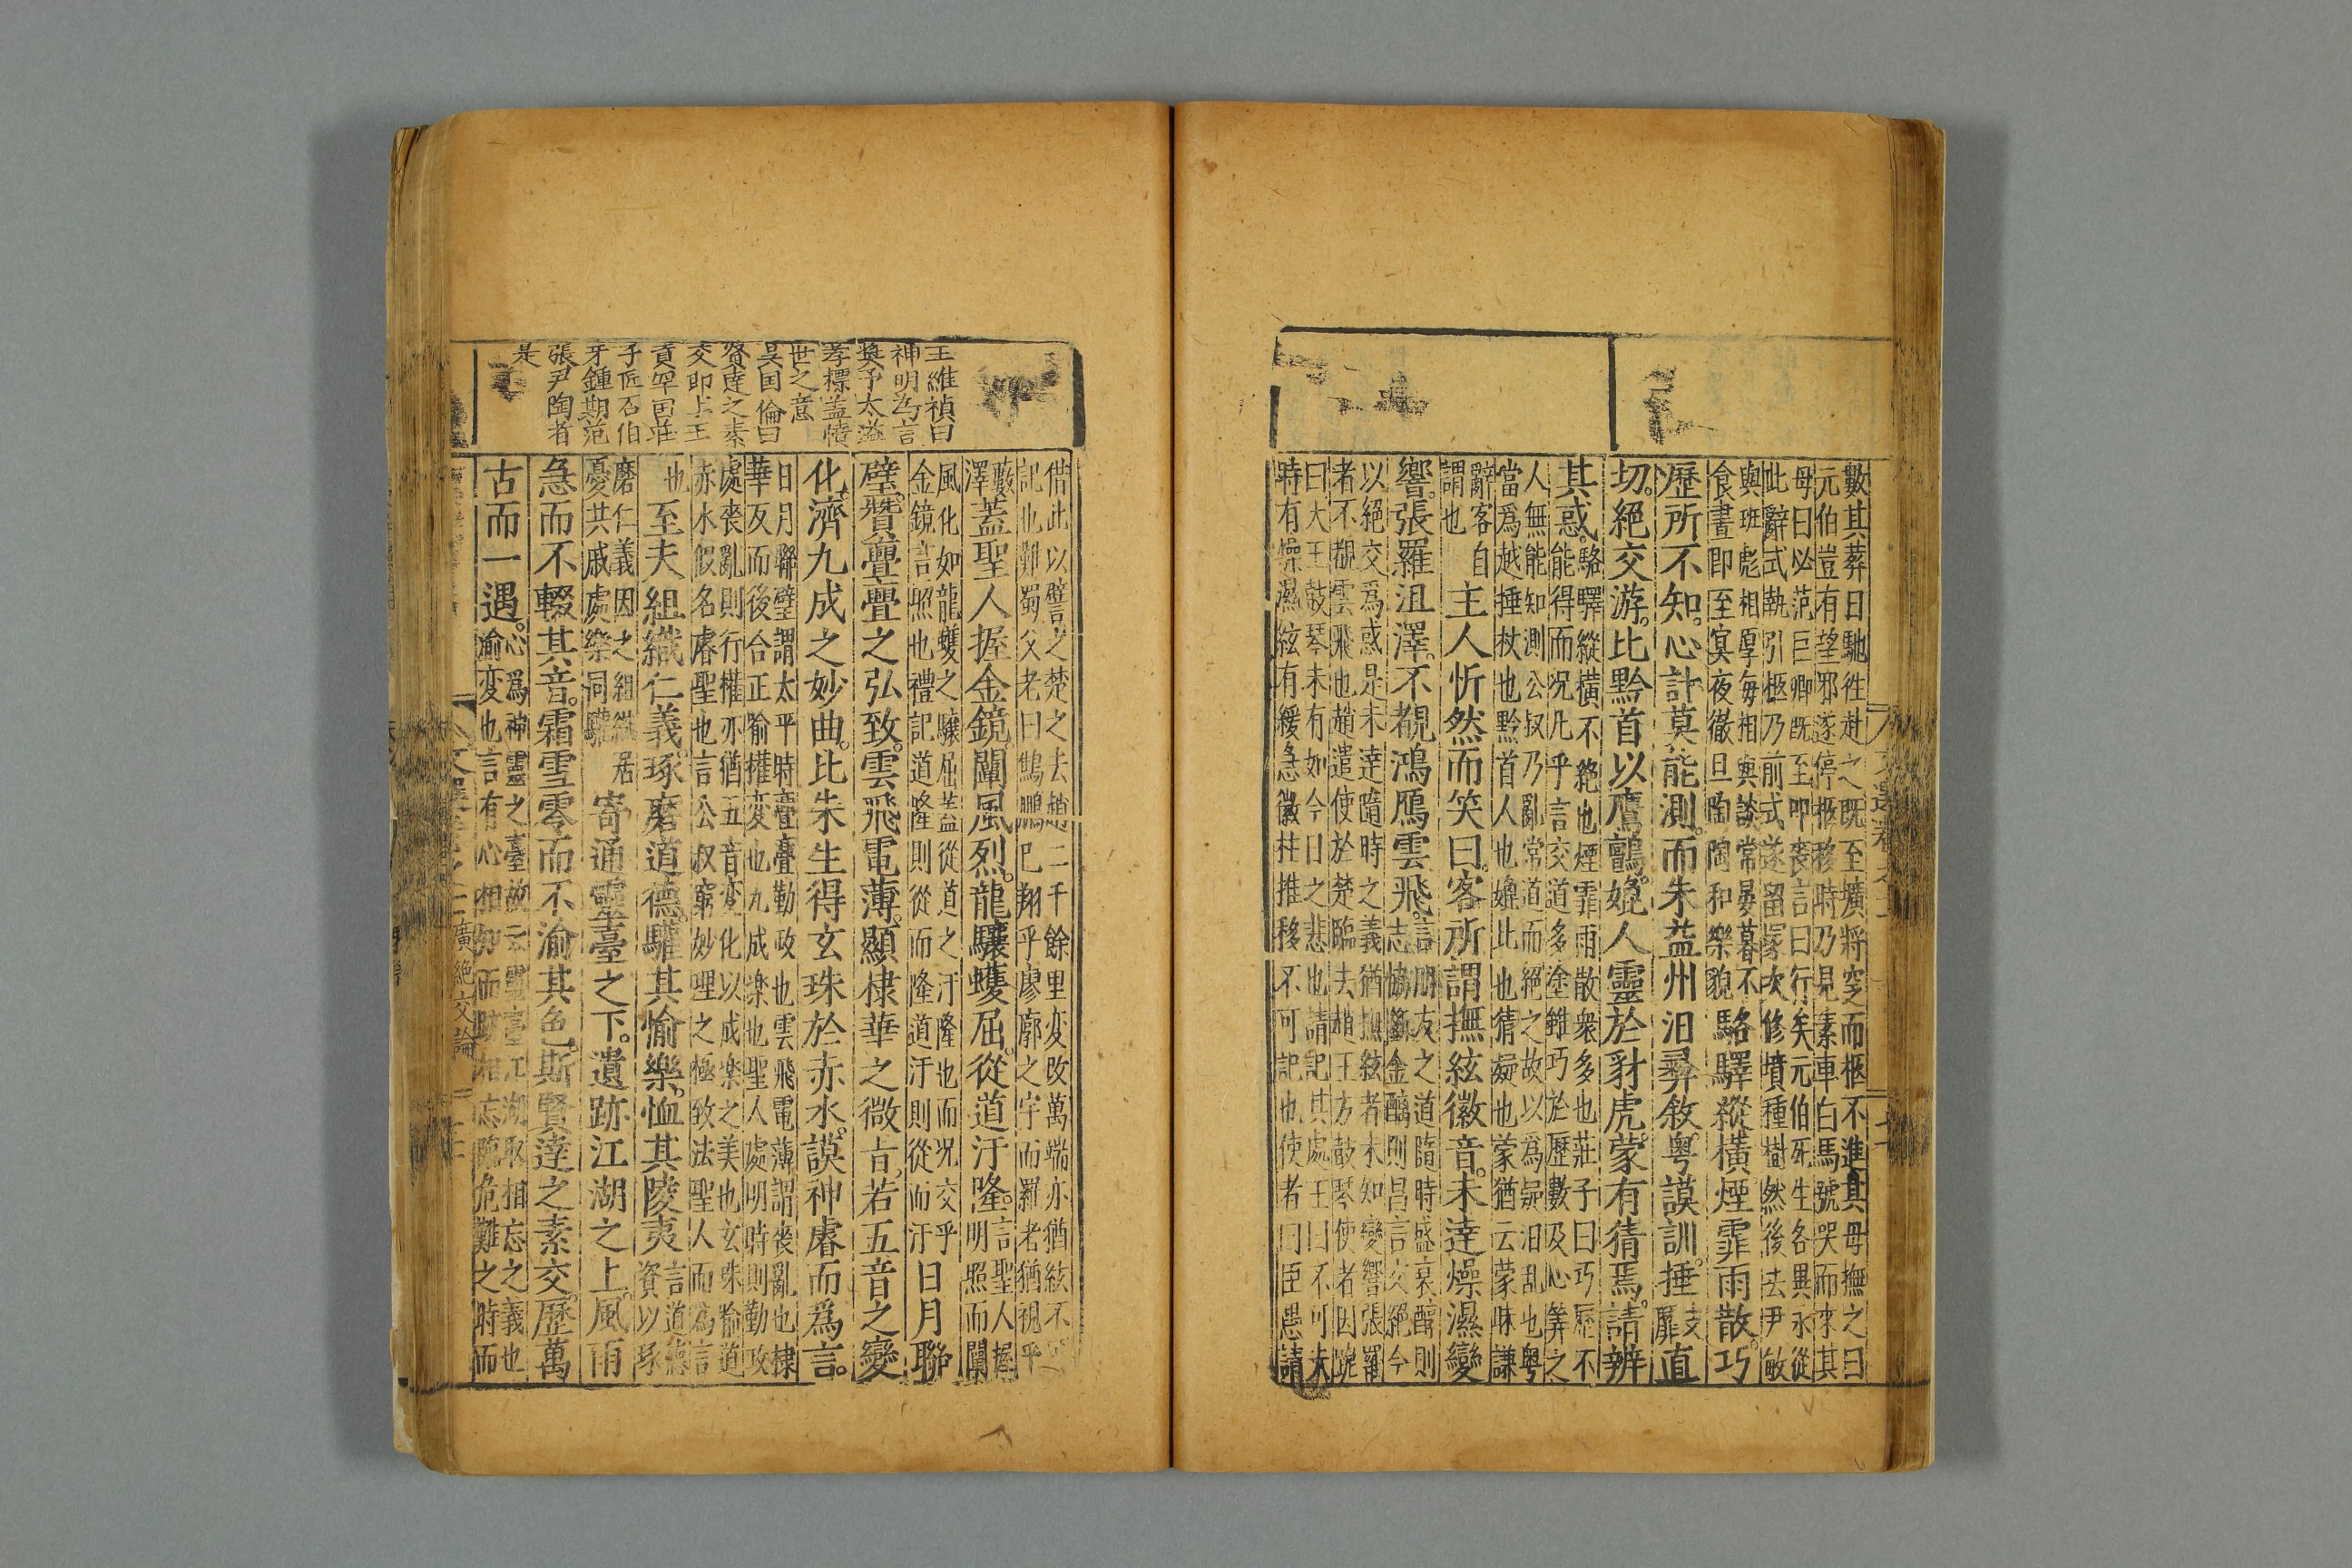 數其葬日馳徃赴之既至壙將窆而柩不進其母撫之曰
元伯豈有望邪遂停柩移時乃見素車白馬號哭而來其
母曰必范巨卿既至叩喪言曰行矣元伯死生各異永從
此辭式執引柩乃前式遂留塚次修墳種樹然後去尹敏
與班彪相厚每相與談常晏暮不
食晝即至冥夜徹旦陶陶和樂貌
駱驛縱橫煙霏雨散巧
歷所不知心計莫能測而朱益州汨彝敘粤謨訓捶直
切絕交游比黔首以鷹鸇媲人靈於豺虎蒙有猜焉請辨
其惑
駱驛縱橫不絕也煙霏雨散衆多也莊子曰巧歷不
能得而况凡乎言交道多塗雖巧於歷數及心筭之
人無能知測公叔乃亂常道而絕之故以爲疑汨乱也粤
當爲越捶杖也黔首人也媲此也猜疑也蒙猶云蒙昧謙
辭客自
謂也
主人忻然而笑曰客所謂撫絃徽音未達燥濕變
響張羅沮澤不覩鴻鴈雲飛
言朋友之道隨時盛衰醇則
志協斷金醨則昌言交絕今
以絕交爲惑是未達隨時之義猶撫絃者未知變響張羅
者不覩雲飛也趙遣使於楚臨去趙王方鼓琴使者因跪
曰大王鼓琴未有如今日之悲也請記其處王曰不可夫
時有燥濕絃有緩急徽柱推移不可記也使者曰臣愚請
文選卷之十二
借此以譬之楚之去趙二千餘里变改萬端亦猶絃不可
記也難蜀父老曰鷦鵬已翔乎廖廓之宇而羅者猶視乎
藪
澤
蓋聖人握金鏡闡風烈龍驤蠖屈從道汙隆
言聖人握
明照而闡
風化如龍蠖之驤屈葢從道之汙隆也而况交乎
金鏡言照也禮記道隆則從而隆道汙則從而汙
日月聯
璧贊亹亹之弘致雲飛電薄顯棣華之微旨若五音之變
化濟九成之妙曲比朱生得玄珠於赤水謨神睿而爲言
日月聯璧謂太平時亹亹勤政也雲飛電薄謂後亂也棣
華反而後合正喻權变也九成楽也聖人處明時則勤政
處喪亂則行權亦猶五音变化以成楽之美也玄珠喻道
赤水假名睿聖也言公叔窮妙理之極致法聖人而為言
也
至夫組織仁義琢磨道德驩其愉樂恤其陵夷
言道德
資以琢
磨仁義因之組織居
憂共戚處樂同驩
寄通靈臺之下遺跡江湖之上風雨
急而不輟其音霜雪零而不渝其色斯賢達之素交歷萬
古而一遇
心爲神靈之臺故云靈臺江湖取相忘之義也
渝变也言有心相知而跡相忘臨危難之時而
王維禎曰
神明為言
奬予太溢
孝標蓋憤
世之意
吳国倫曰
賢達之素
交即上王
貢罕国莊
子匠石伯
牙鍾期范
張尹陶者
是
廣絕交論